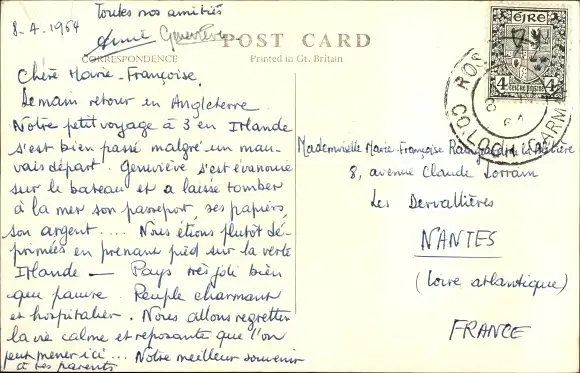 8.4.1964
Toutes nos amitiés
Annie Geneviève
POST CARD
CORRESPONDENCE
Printed in Gt. Britain
Chère Marie-Françoise,
Demain retour en Angleterre.
Notre petit voyage à 3 en Irlande
s'est bien passé malgré un mau-
vais départ. Geneviève s'est évanouie
sur le bateau et a laissé tomber
à la mer son passeport, ses papiers,
son argent.... Nous étions plutôt dé-
primées en prenant pied sur la verte
Irlande — Pays très joli bien
que pauvre. Peuple charmant
et hospitalier. Nous allons regretter
la vie calme et reposante que l'on
peut mener ici... Notre meilleur souvenir
à tes parents
éire
4 4
ROS
CO. LOCH GARMAN
Mademoiselle Marie-Françoise
8, avenue Claude Lorrain
Les Dervallières
NANTES
(Loire atlantique)
FRANCE